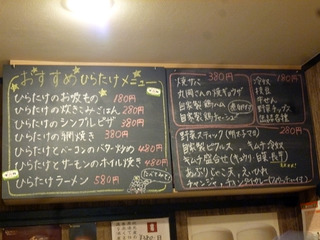 おすすめひらたけメニュー
ひらたけのお吸もの 180円
ひらたけの炊きこみごはん 280円
ひらたけのシングルピザ 380円
ひらたけの網焼き 380円
ひらたけとベーコンのバター炒め 480円
ひらたけとサーモンのホイル焼き 480円
ひらたけラーメン 580円
380円
丸岡さんの焼ギョウザ
自家製鶏ハム
自家製
180円
冷奴
枝豆
野菜チップス
野菜スティック(明太子マヨ) 280円
自家製ピクルス
キムチ冷奴
キムチ盛合せ
あぶりじゃこ天
えいひれ